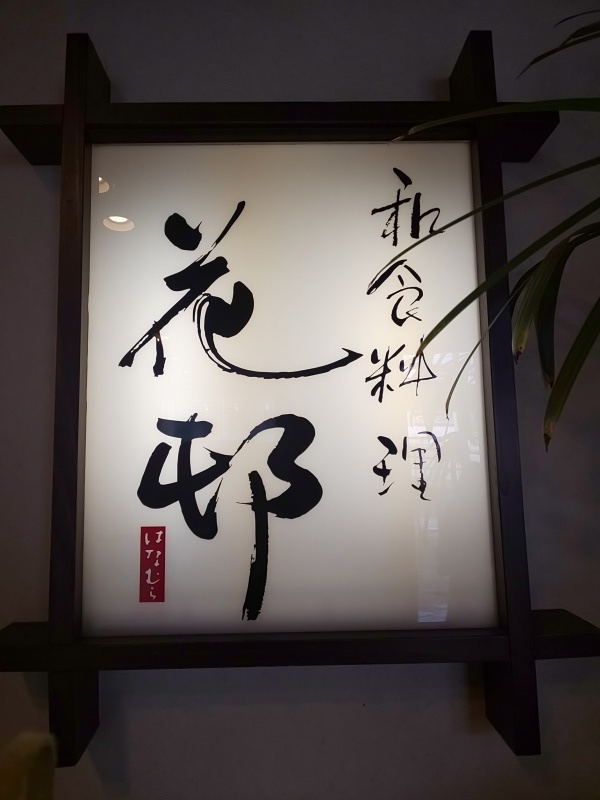 和食料理
花邨
はなむら